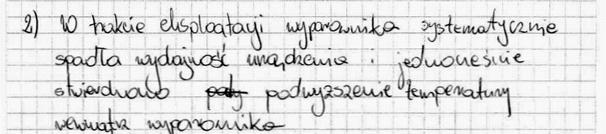 2) W trakcie eksploatacji wyparownika systematycznie
spadła wydajność urządzenia i jednocześnie
stwierdzono podwyższenie temperatury
wewnątrz wyparownika